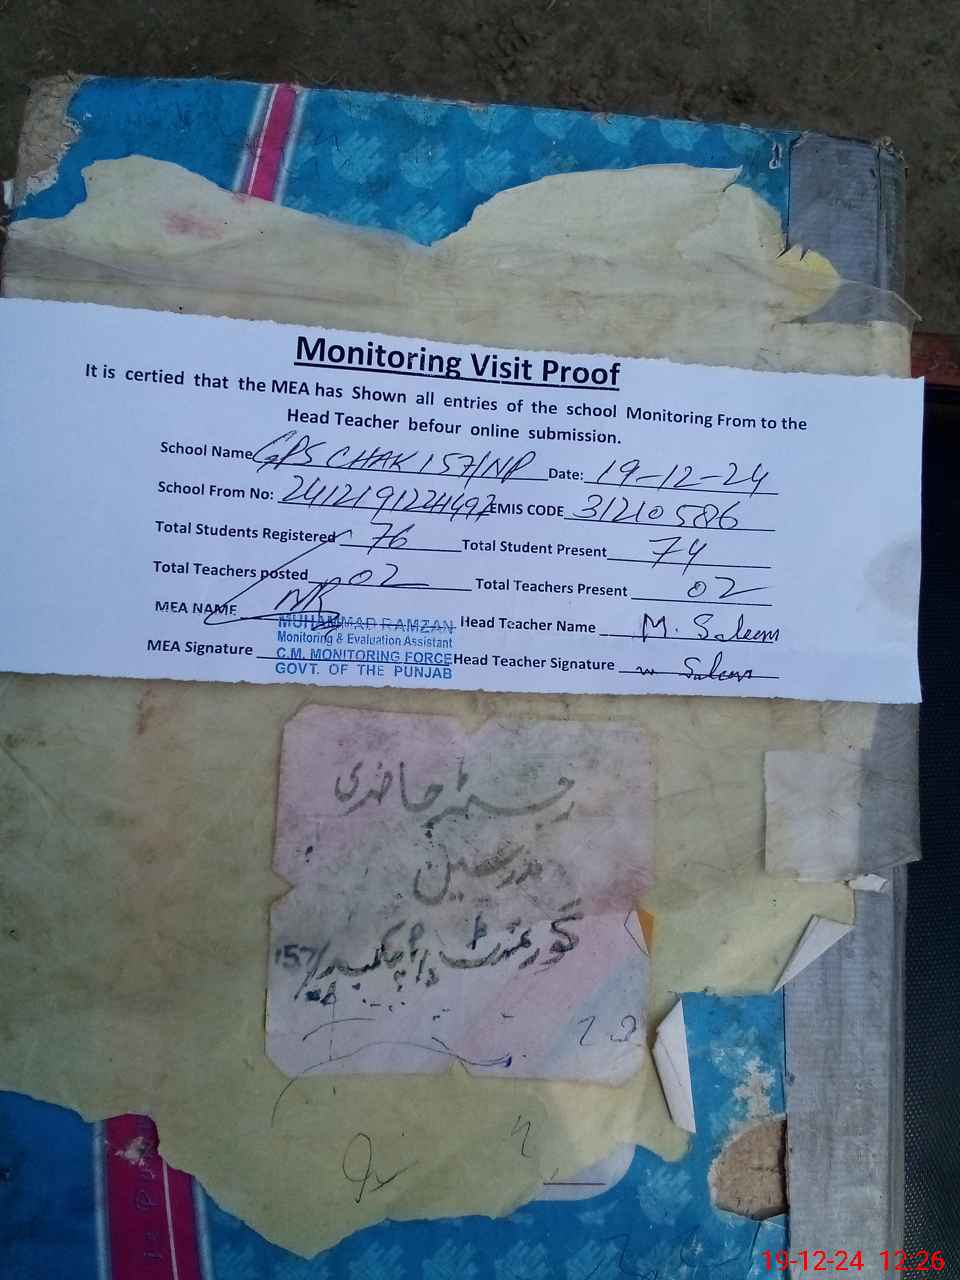 Monitoring Visit Proof
It is certied that the MEA has Shown all entries of the school Monitoring From to the
Head Teacher befour online submission.
School Name GPS CHAK 157/NP Date: 19-12-24
School From No: EMIS CODE 31210586
Total Students Registered 76 Total Student Present 74
Total Teachers posted 02 Total Teachers Present 02
MEA NAME Head Teacher Name M. Saleem
MUHAMMAD RAMZAN
Monitoring & Evaluation Assistant
MEA Signature C.M. MONITORING FORCE Head Teacher Signature Saleem
GOVT. OF THE PUNJAB
رجسٹر حاضری
مدرسین
گورنمنٹ 157/
19-12-24 12:26